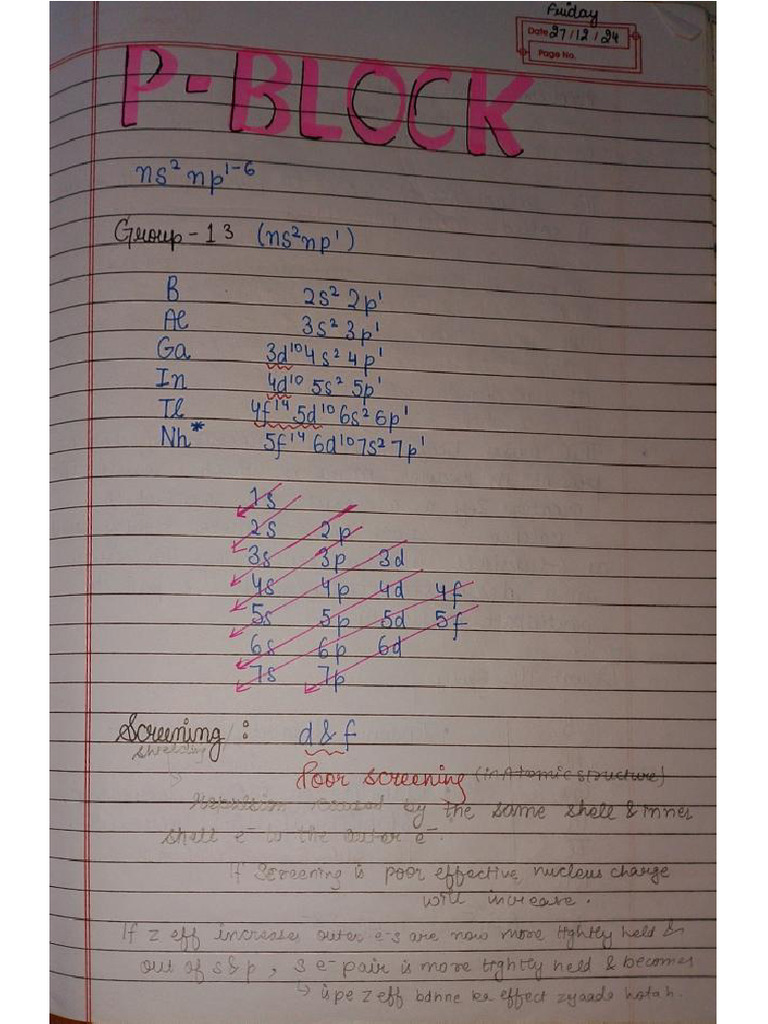 Friday
Date 27/12/24
Page No.
P-BLOCK
ns² np¹⁻⁶
Group-13 (ns²np¹)
B 2s² 2p¹
Al 3s² 3p¹
Ga 3d¹⁰ 4s² 4p¹
In 4d¹⁰ 5s² 5p¹
Tl 4f¹⁴ 5d¹⁰ 6s² 6p¹
Nh* 5f¹⁴ 6d¹⁰ 7s² 7p¹
1s
2s 2p
3s 3p 3d
4s 4p 4d 4f
5s 5p 5d 5f
6s 6p 6d
7s 7p
Screening : d & f
shielding
Poor screening (in Atomic structure)
Repulsion caused by the same shell & inner
shell e⁻ to the outer e⁻.
If Screening is poor effective nucleus charge
will increase.
If z eff increases outer e⁻s are now more tightly held &
out of s & p, s e⁻ pair is more tightly held & becomes
↳ ispe z eff ka effect zyaada hota h.